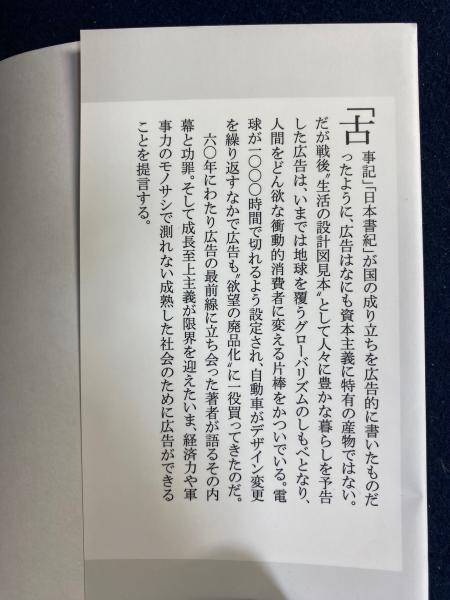 「古事記」「日本書紀」が国の成り立ちを広告的に書いたものだ
ったように、広告はなにも資本主義に特有の産物ではない。
だが戦後〝生活の設計図見本〟として人々に豊かな暮らしを予告
した広告は、いまでは地球を覆うグローバリズムのしもべとなり、
人間をどん欲な衝動的消費者に変える片棒をかついでいる。電
球が一〇〇〇時間で切れるよう設定され、自動車がデザイン変更
を繰り返すなかで広告も〝欲望の廃品化〟に一役買ってきたのだ。
六〇年にわたり広告の最前線に立ち会った著者が語るその内
幕と功罪。そして成長至上主義が限界を迎えたいま、経済力や軍
事力のモノサシで測れない成熟した社会のために広告ができる
ことを提言する。